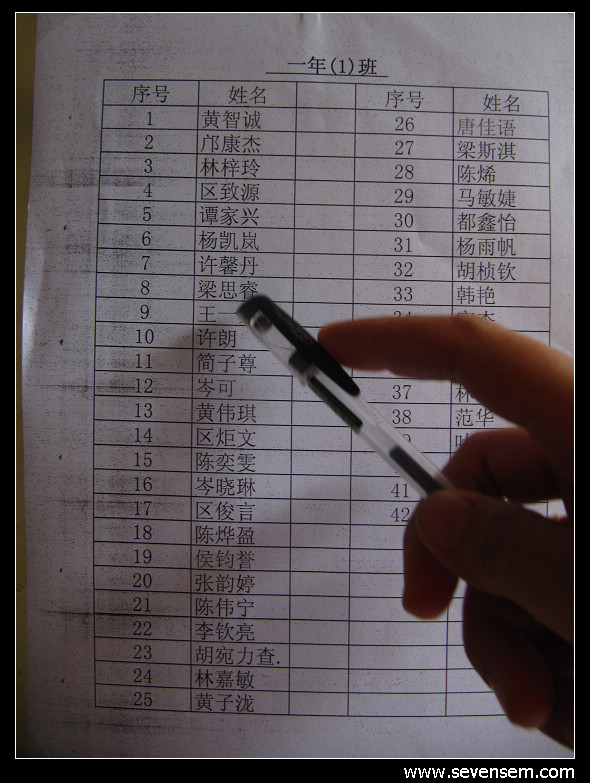 一年(1)班
序号 姓名 序号 姓名
1 黄智诚 26 唐佳语
2 邝康杰 27 梁斯淇
3 林梓玲 28 陈烯
4 区致源 29 马敏婕
5 谭家兴 30 都鑫怡
6 杨凯岚 31 杨雨帆
7 许馨丹 32 胡桢钦
8 梁思睿 33 韩艳
9 王一 34
10 许朗
11 简子尊
12 岑可 37 林
13 黄伟琪 38 范华
14 区炬文
15 陈奕雯
16 岑晓琳 41
17 区俊言 42
18 陈烨盈
19 侯钧誉
20 张韵婷
21 陈伟宁
22 李钦亮
23 胡宛力查.
24 林嘉敏
25 黄子泷
www.sevensem.com